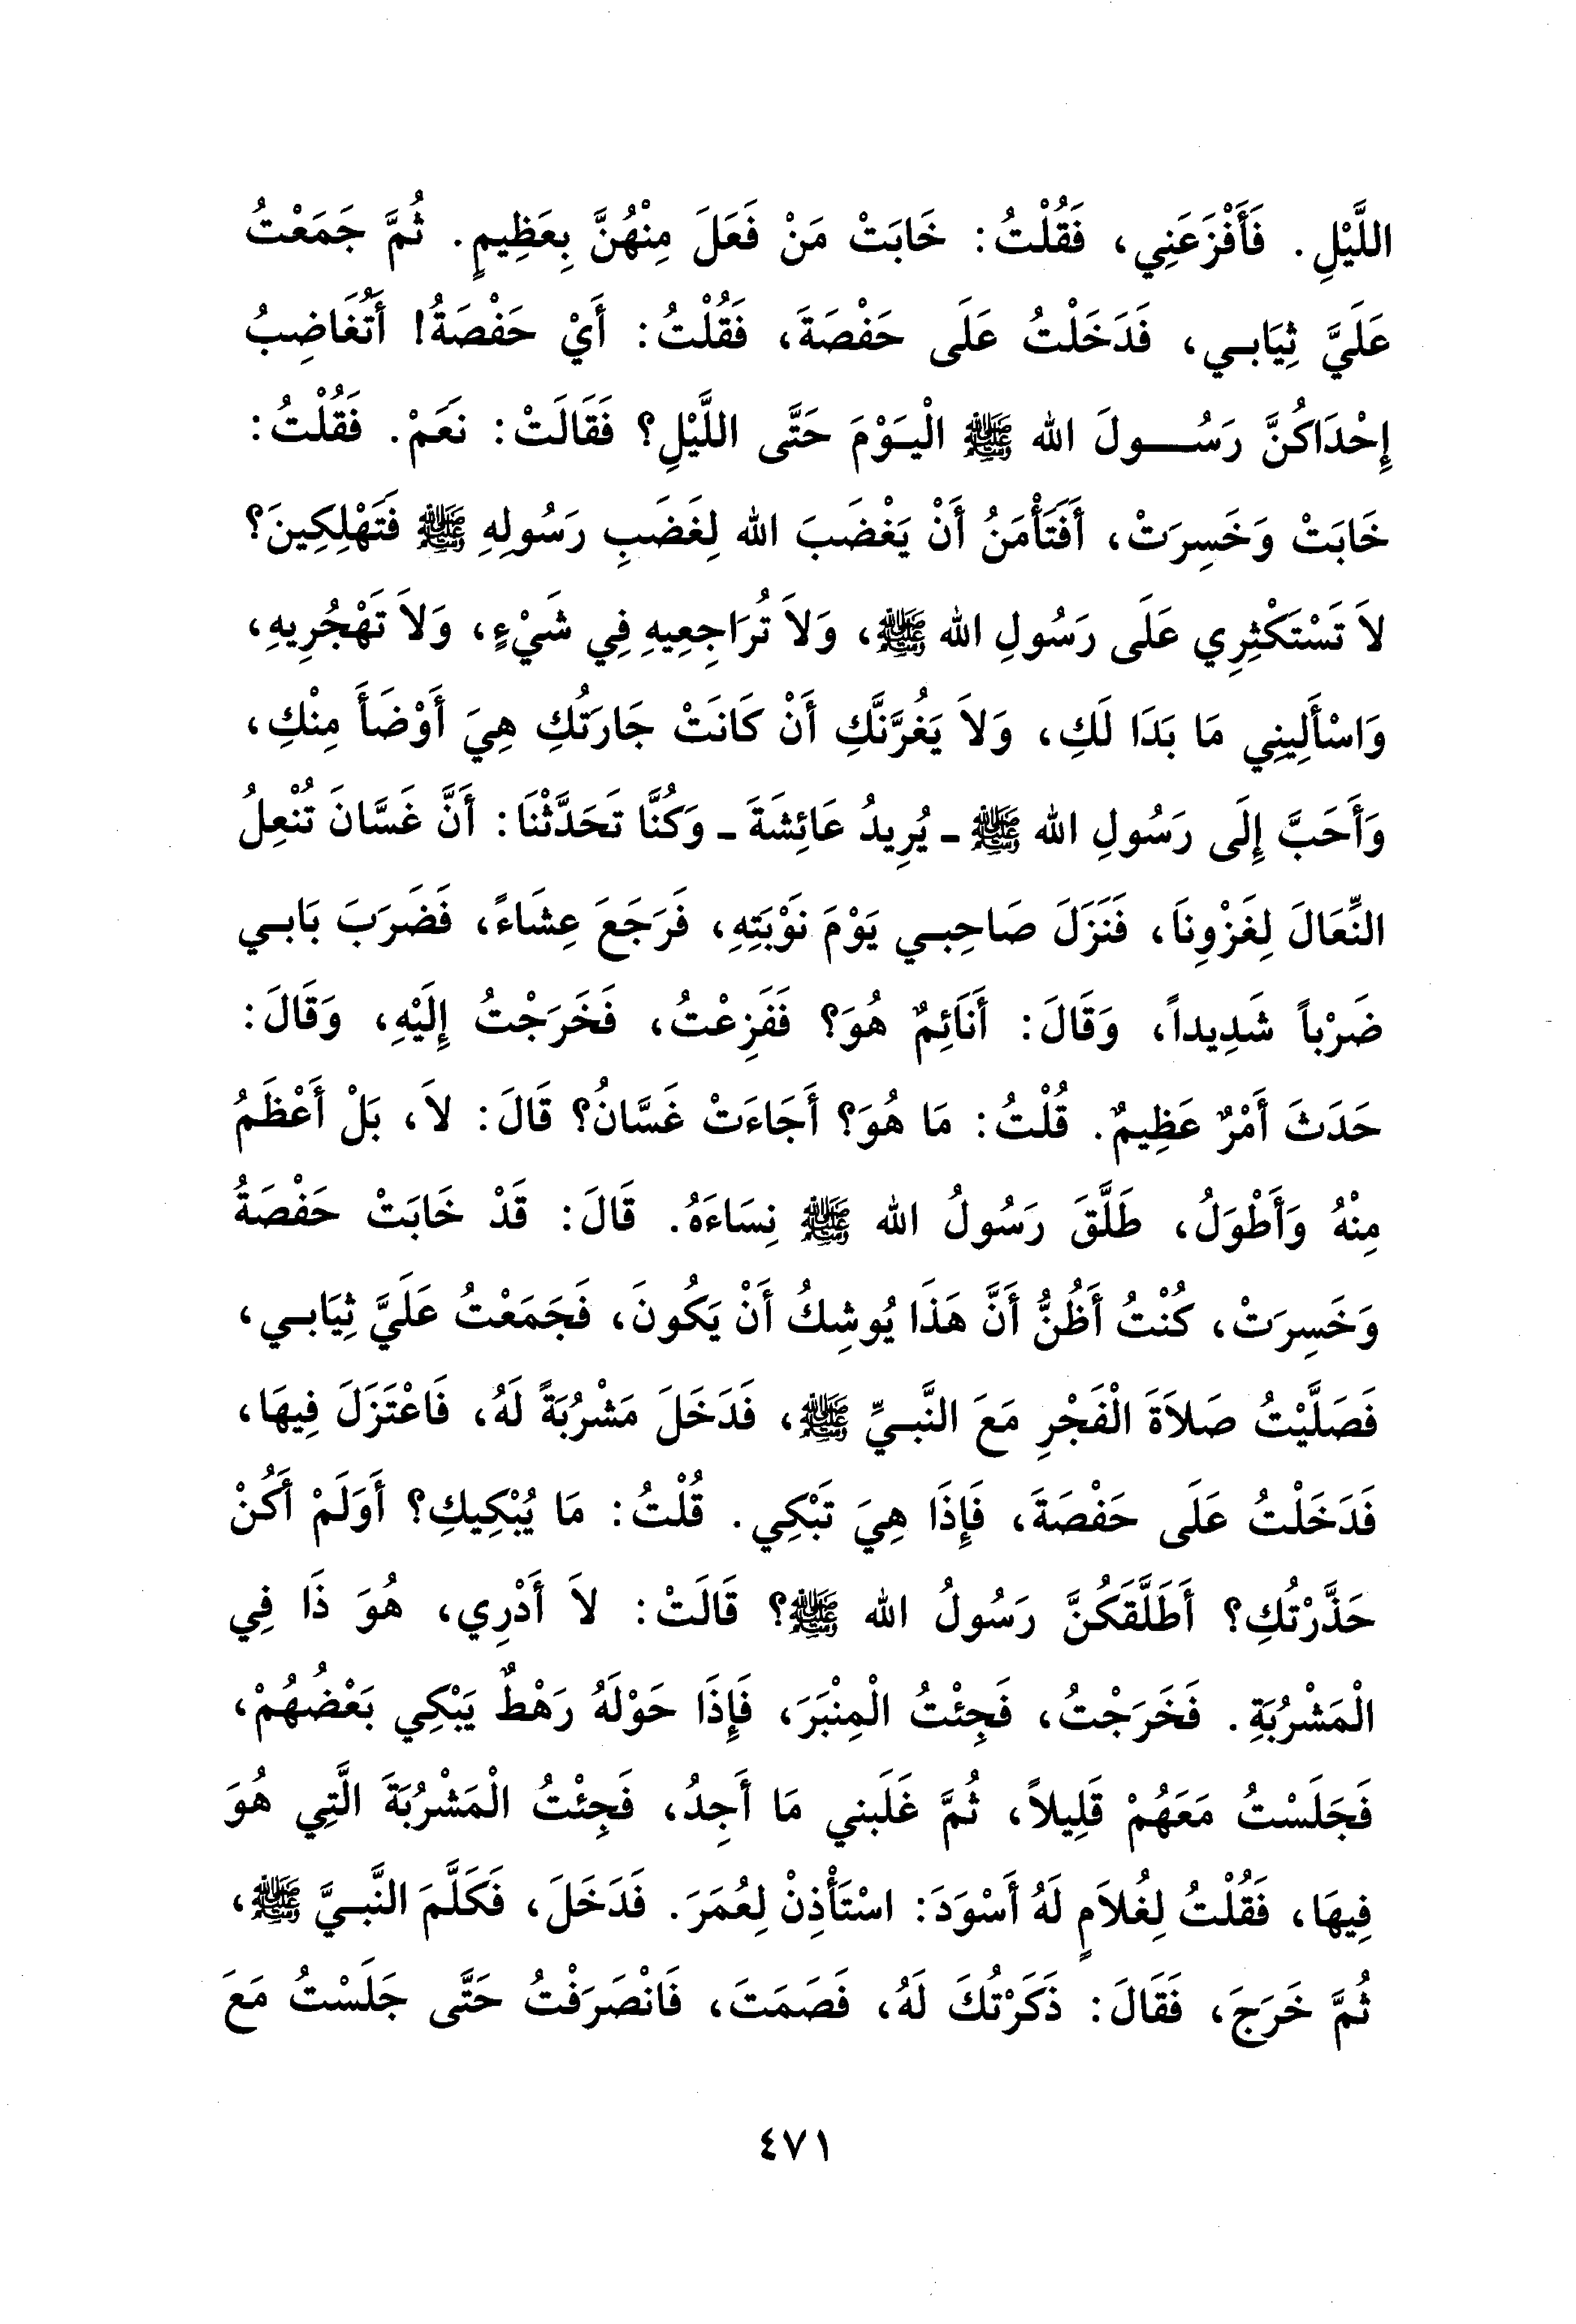 اللَّيْلِ. فَأَفْزَعَنِي، فَقُلْتُ: خَابَتْ مَنْ فَعَلَ مِنْهُنَّ بِعَظِيمٍ. ثُمَّ جَمَعْتُ
عَلَيَّ ثِيَابِي، فَدَخَلْتُ عَلَى حَفْصَةَ، فَقُلْتُ: أَيْ حَفْصَةُ! أَتُغَاضِبُ
إِحْدَاكُنَّ رَسُولَ الله ﷺ الْيَوْمَ حَتَّى اللَّيْلِ؟ فَقَالَتْ: نَعَمْ. فَقُلْتُ:
خَابَتْ وَخَسِرَتْ، أَفَتَأْمَنُ أَنْ يَغْضَبَ الله لِغَضَبِ رَسُولِهِ ﷺ فَتَهْلِكِينَ؟
لاَ تَسْتَكْثِرِي عَلَى رَسُولِ الله ﷺ، وَلاَ تُرَاجِعِيهِ فِي شَيْءٍ، وَلاَ تَهْجُرِيهِ،
وَاسْأَلِينِي مَا بَدَا لَكِ، وَلاَ يَغُرَّنَّكِ أَنْ كَانَتْ جَارَتُكِ هِيَ أَوْضَأَ مِنْكِ،
وَأَحَبَّ إِلَى رَسُولِ الله ﷺ - يُرِيدُ عَائِشَةَ - وَكُنَّا تَحَدَّثْنَا: أَنَّ غَسَّانَ تُنْعِلُ
النِّعَالَ لِغَزْوِنَا، فَنَزَلَ صَاحِبِي يَوْمَ نَوْبَتِهِ، فَرَجَعَ عِشَاءً، فَضَرَبَ بَابِي
ضَرْباً شَدِيداً، وَقَالَ: أَنَائِمٌ هُوَ؟ فَفَزِعْتُ، فَخَرَجْتُ إِلَيْهِ، وَقَالَ:
حَدَثَ أَمْرٌ عَظِيمٌ. قُلْتُ: مَا هُوَ؟ أَجَاءَتْ غَسَّانُ؟ قَالَ: لاَ، بَلْ أَعْظَمُ
مِنْهُ وَأَطْوَلُ، طَلَّقَ رَسُولُ الله ﷺ نِسَاءَهُ. قَالَ: قَدْ خَابَتْ حَفْصَةُ
وَخَسِرَتْ، كُنْتُ أَظُنُّ أَنَّ هَذَا يُوشِكُ أَنْ يَكُونَ، فَجَمَعْتُ عَلَيَّ ثِيَابِي،
فَصَلَّيْتُ صَلاَةَ الْفَجْرِ مَعَ النَّبِيِّ ﷺ، فَدَخَلَ مَشْرُبَةً لَهُ، فَاعْتَزَلَ فِيهَا،
فَدَخَلْتُ عَلَى حَفْصَةَ، فَإِذَا هِيَ تَبْكِي. قُلْتُ: مَا يُبْكِيكِ؟ أَوَلَمْ أَكُنْ
حَذَّرْتُكِ؟ أَطَلَّقَكُنَّ رَسُولُ الله ﷺ؟ قَالَتْ: لاَ أَدْرِي، هُوَ ذَا فِي
الْمَشْرُبَةِ. فَخَرَجْتُ، فَجِئْتُ الْمِنْبَرَ، فَإِذَا حَوْلَهُ رَهْطٌ يَبْكِي بَعْضُهُمْ،
فَجَلَسْتُ مَعَهُمْ قَلِيلاً، ثُمَّ غَلَبَنِي مَا أَجِدُ، فَجِئْتُ الْمَشْرُبَةَ الَّتِي هُوَ
فِيهَا، فَقُلْتُ لِغُلاَمٍ لَهُ أَسْوَدَ: اسْتَأْذِنْ لِعُمَرَ. فَدَخَلَ، فَكَلَّمَ النَّبِيَّ ﷺ،
ثُمَّ خَرَجَ، فَقَالَ: ذَكَرْتُكَ لَهُ، فَصَمَتَ، فَانْصَرَفْتُ حَتَّى جَلَسْتُ مَعَ
٤٧١